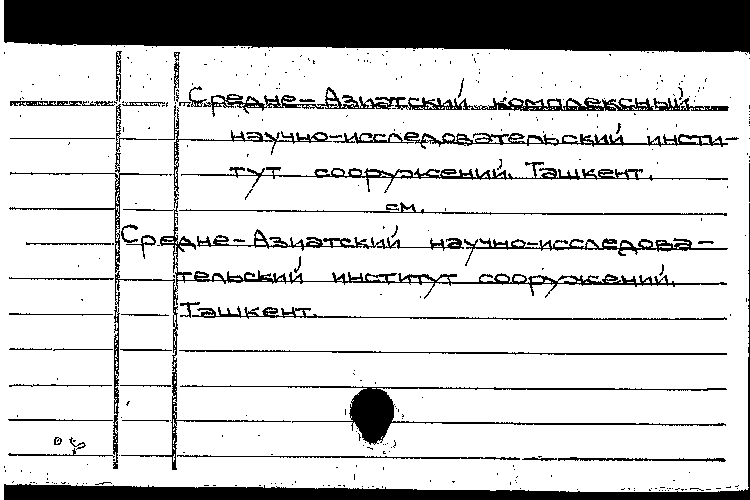 Средне-Азиатский комплексный
научно-исследовательский инсти-
тут сооружений. Ташкент.
см.
Средне-Азиатский научно-исследова-
тельский институт сооружений.
Ташкент.